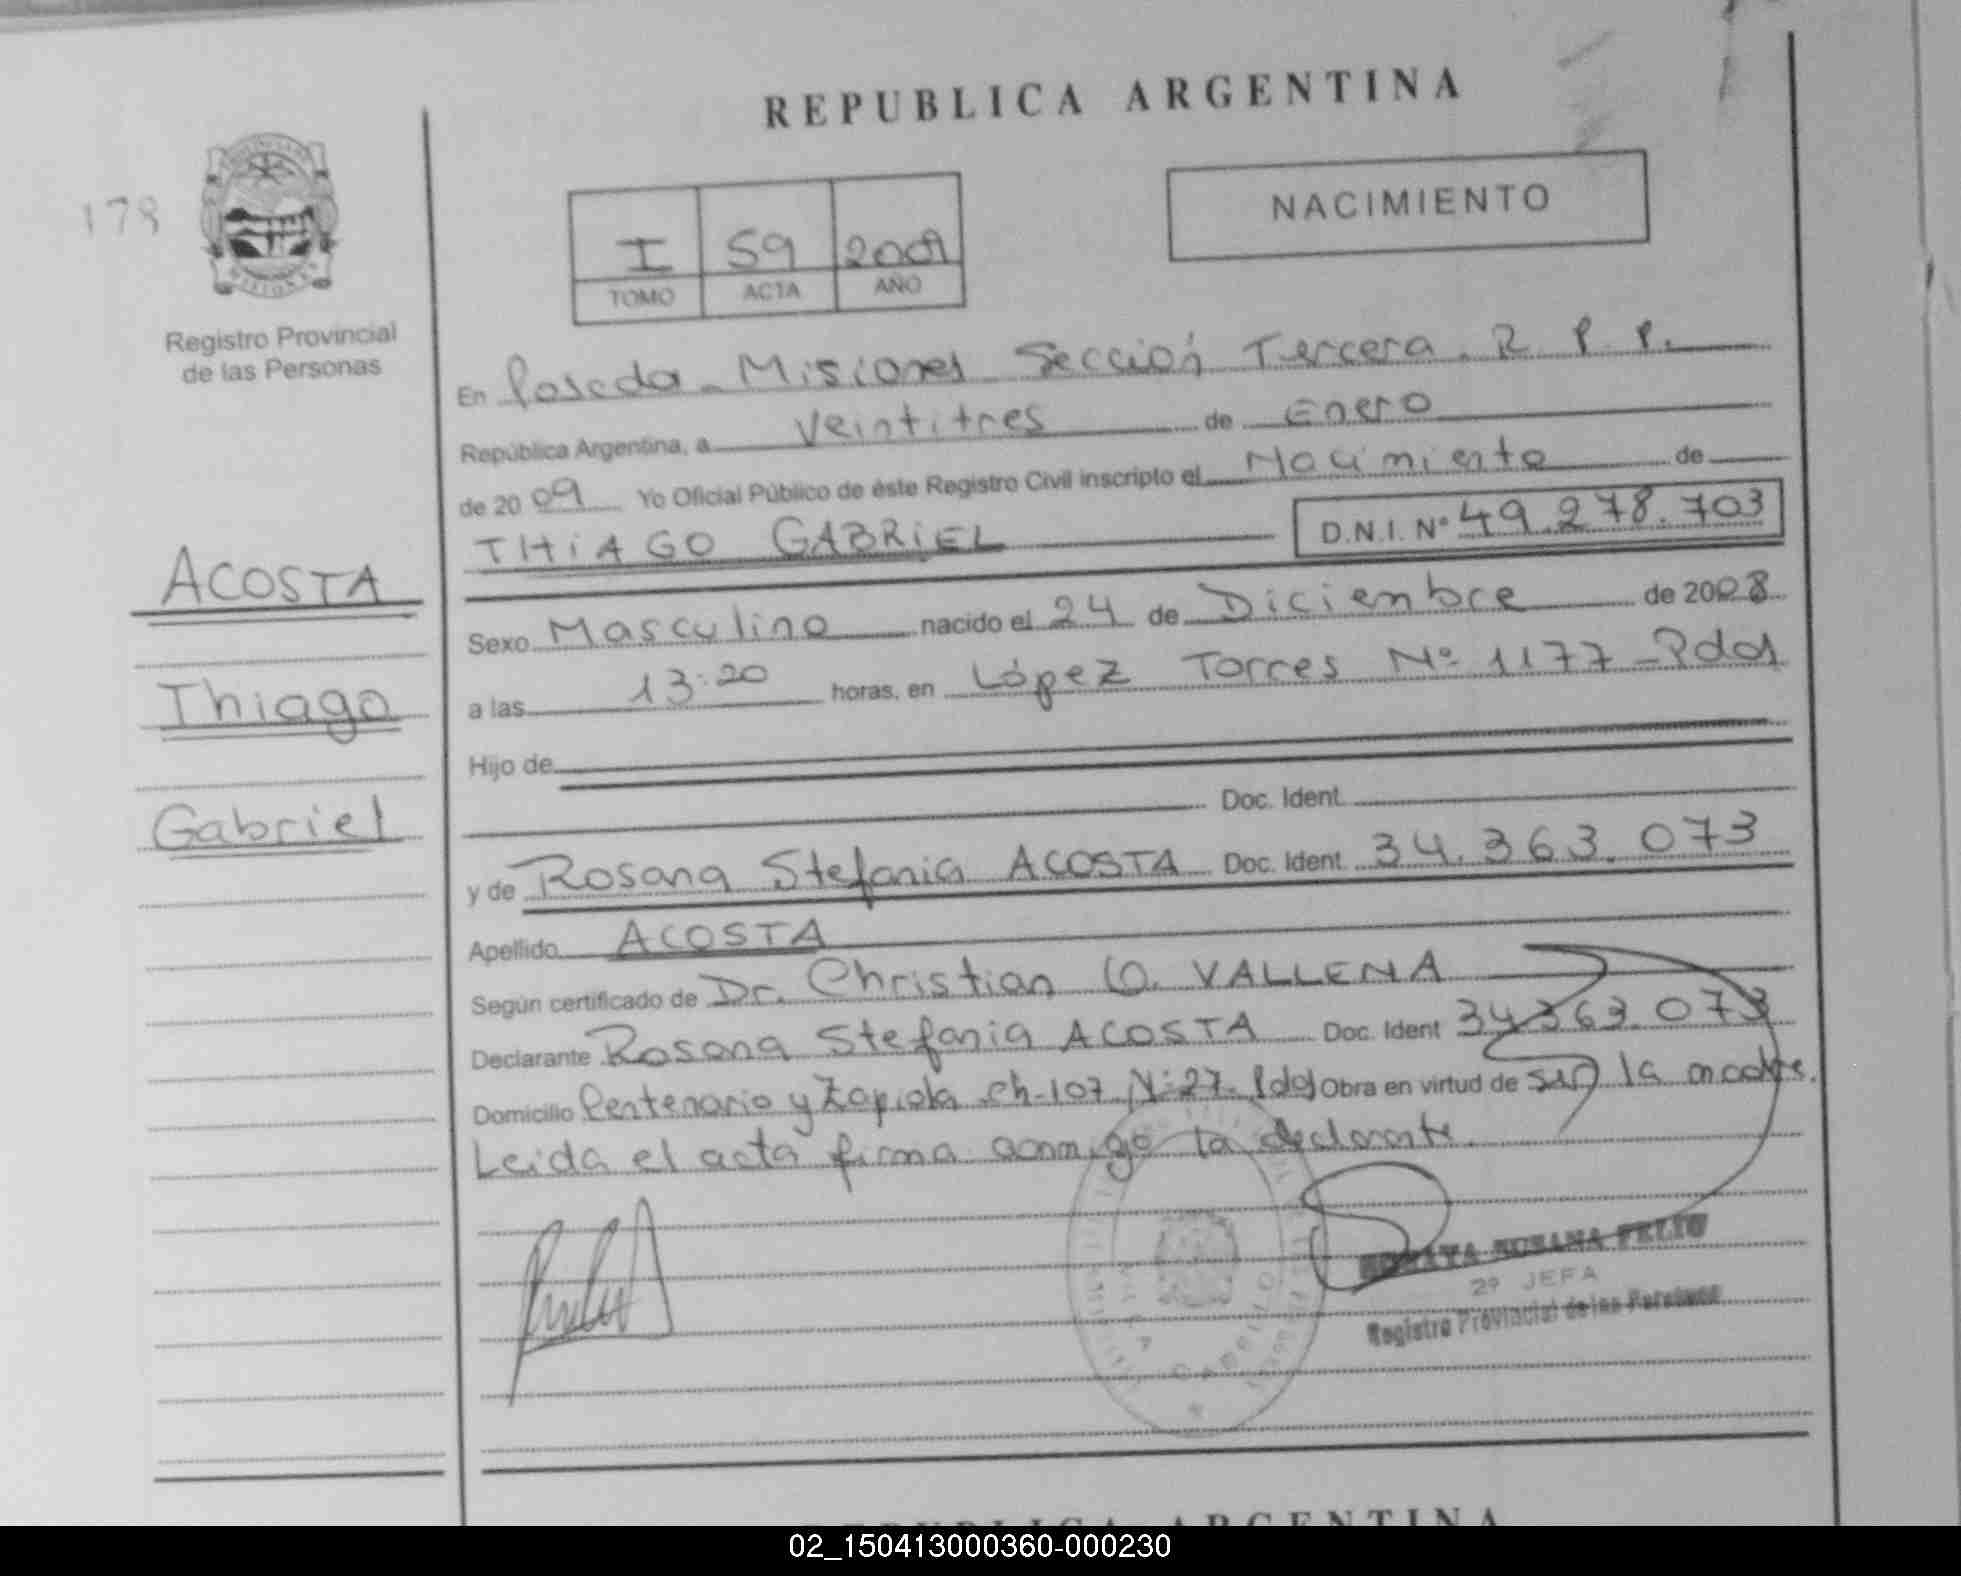 REPUBLICA ARGENTINA
178
NACIMIENTO
I 59 2009
TOMO ACTA AÑO
Registro Provincial
de las Personas
En Posadas - Misiones Sección Tercera. R. P. P.
República Argentina, a Veintitres de Enero
de 2009 Yo Oficial Público de éste Registro Civil inscripto el Nacimiento de
THIAGO GABRIEL D.N.I. Nº 49.278.703
ACOSTA
Thiago
Gabriel
Sexo Masculino nacido el 24 de Diciembre de 2008
a las 13:20 horas, en López Torres Nº 1177 - Pdas
Hijo de
Doc. Ident.
y de Rosana Stefania ACOSTA Doc. Ident. 34.363.073
Apellido ACOSTA
Según certificado de Dr. Christian O. VALLENA
Declarante Rosana Stefania ACOSTA Doc. Ident 34363.073
Domicilio Centenario y Zapiola ch-107 Nº27. Pdas Obra en virtud de ser la madre.
Leida el acta firma conmigo la declarante.
ROSANA FELIU
2º JEFA
Registro Provincial de las Personas
REPUBLICA ARGENTINA
02_150413000360-000230